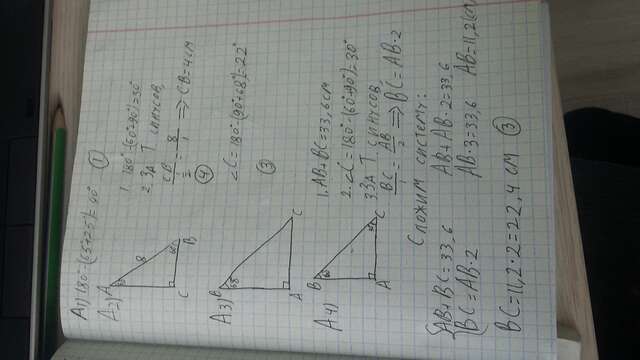 A1) 180°-(65+25°)=90° ①
A2)
A
30
8
60
C
B
1. 180°-(60°+90°)=30°
2. ЗА Т СИНУСОВ
CB/½ = 8/1 => CB=4см
④
A3)
B
68
A
C
∠C=180°-(90°+68°)=22°
③
A4)
B
60
A
C
1. AB+BC=33,6см
2. ∠C=180°-(60°+90°)=30°
3 ЗА Т СИНУСОВ
BC/1 = AB/½ => BC=AB·2
Сложим систему:
{AB+BC=33,6
BC=AB·2
AB+AB·2=33,6
AB·3=33,6
AB=11,2(см)
BC=11,2·2=22,4 см ③